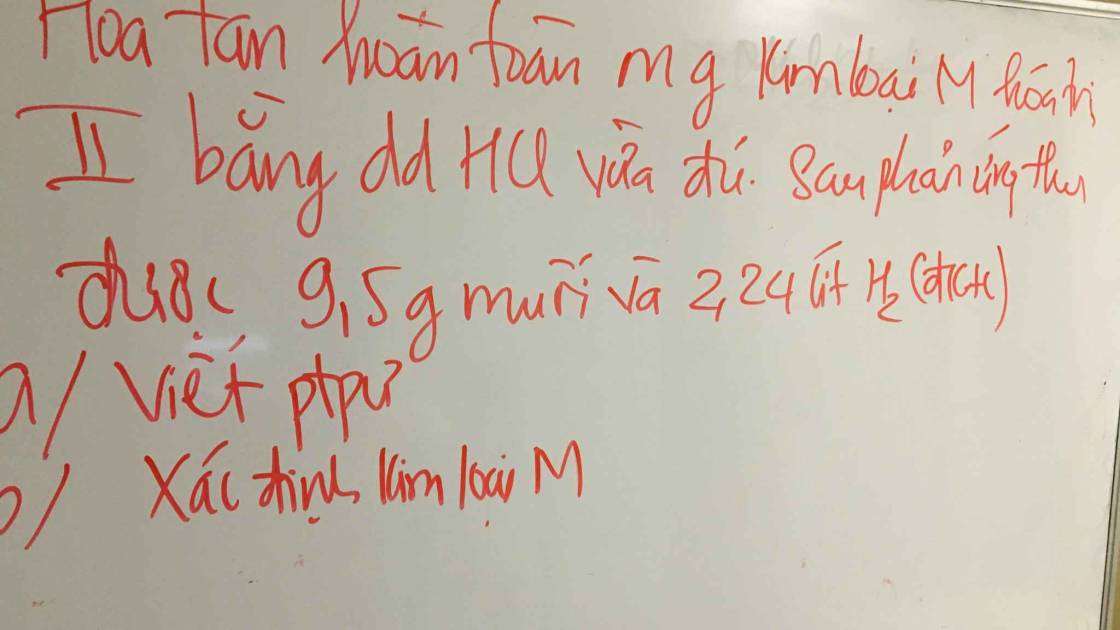 Hòa tan hoàn toàn m g kim loại M hóa trị
II bằng dd HCl vừa đủ. Sau phản ứng thu
được 9,5g muối và 2,24 lít H₂ (đktc)
a/ Viết ptpư
b/ Xác định kim loại M